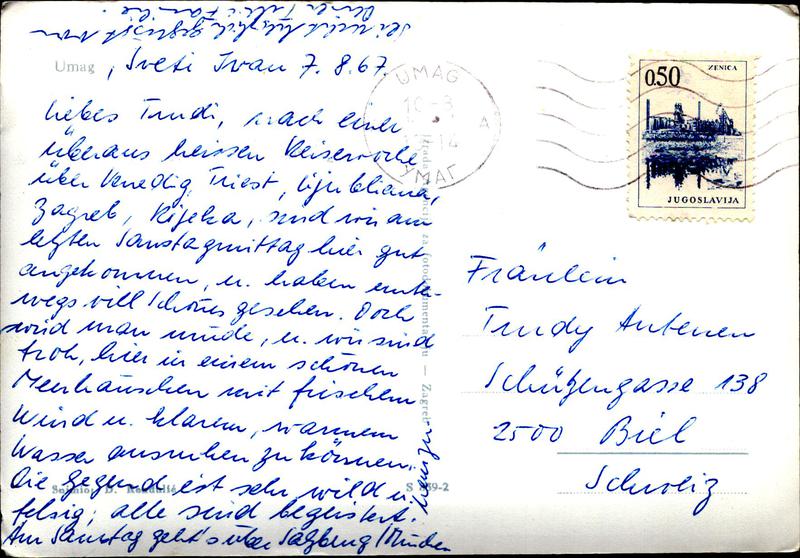 Umag, Sveti Ivan 7.8.67.
Liebes Trudi, nach einer
überaus heissen Reisewoche
über Venedig, Triest, Ljubliana,
Zagreb, Rijeka, sind wir am
letzten Samstagmittag hier gut
angekommen, u. haben unter-
wegs viel Schönes gesehen. Doch
wird man müde, u. wir sind
froh, hier in einem schönen
Meerhäuschen mit frischem
Wind u. klarem, warmem
Wasser ausruhen zu können.
Die Gegend ist sehr wild u.
felsig; alle sind begeistert.
Am Samstag geht's über Salzburg/München
heimzu.
Sei recht herzlich gegrüsst von
Familie
UMAG
УМАГ
ZENICA
0.50
JUGOSLAVIJA
Fräulein
Trudy Antenen
Schützengasse 138
2500 Biel
Schweiz
za fotodokumentaciju — Zagreb
S 139-2